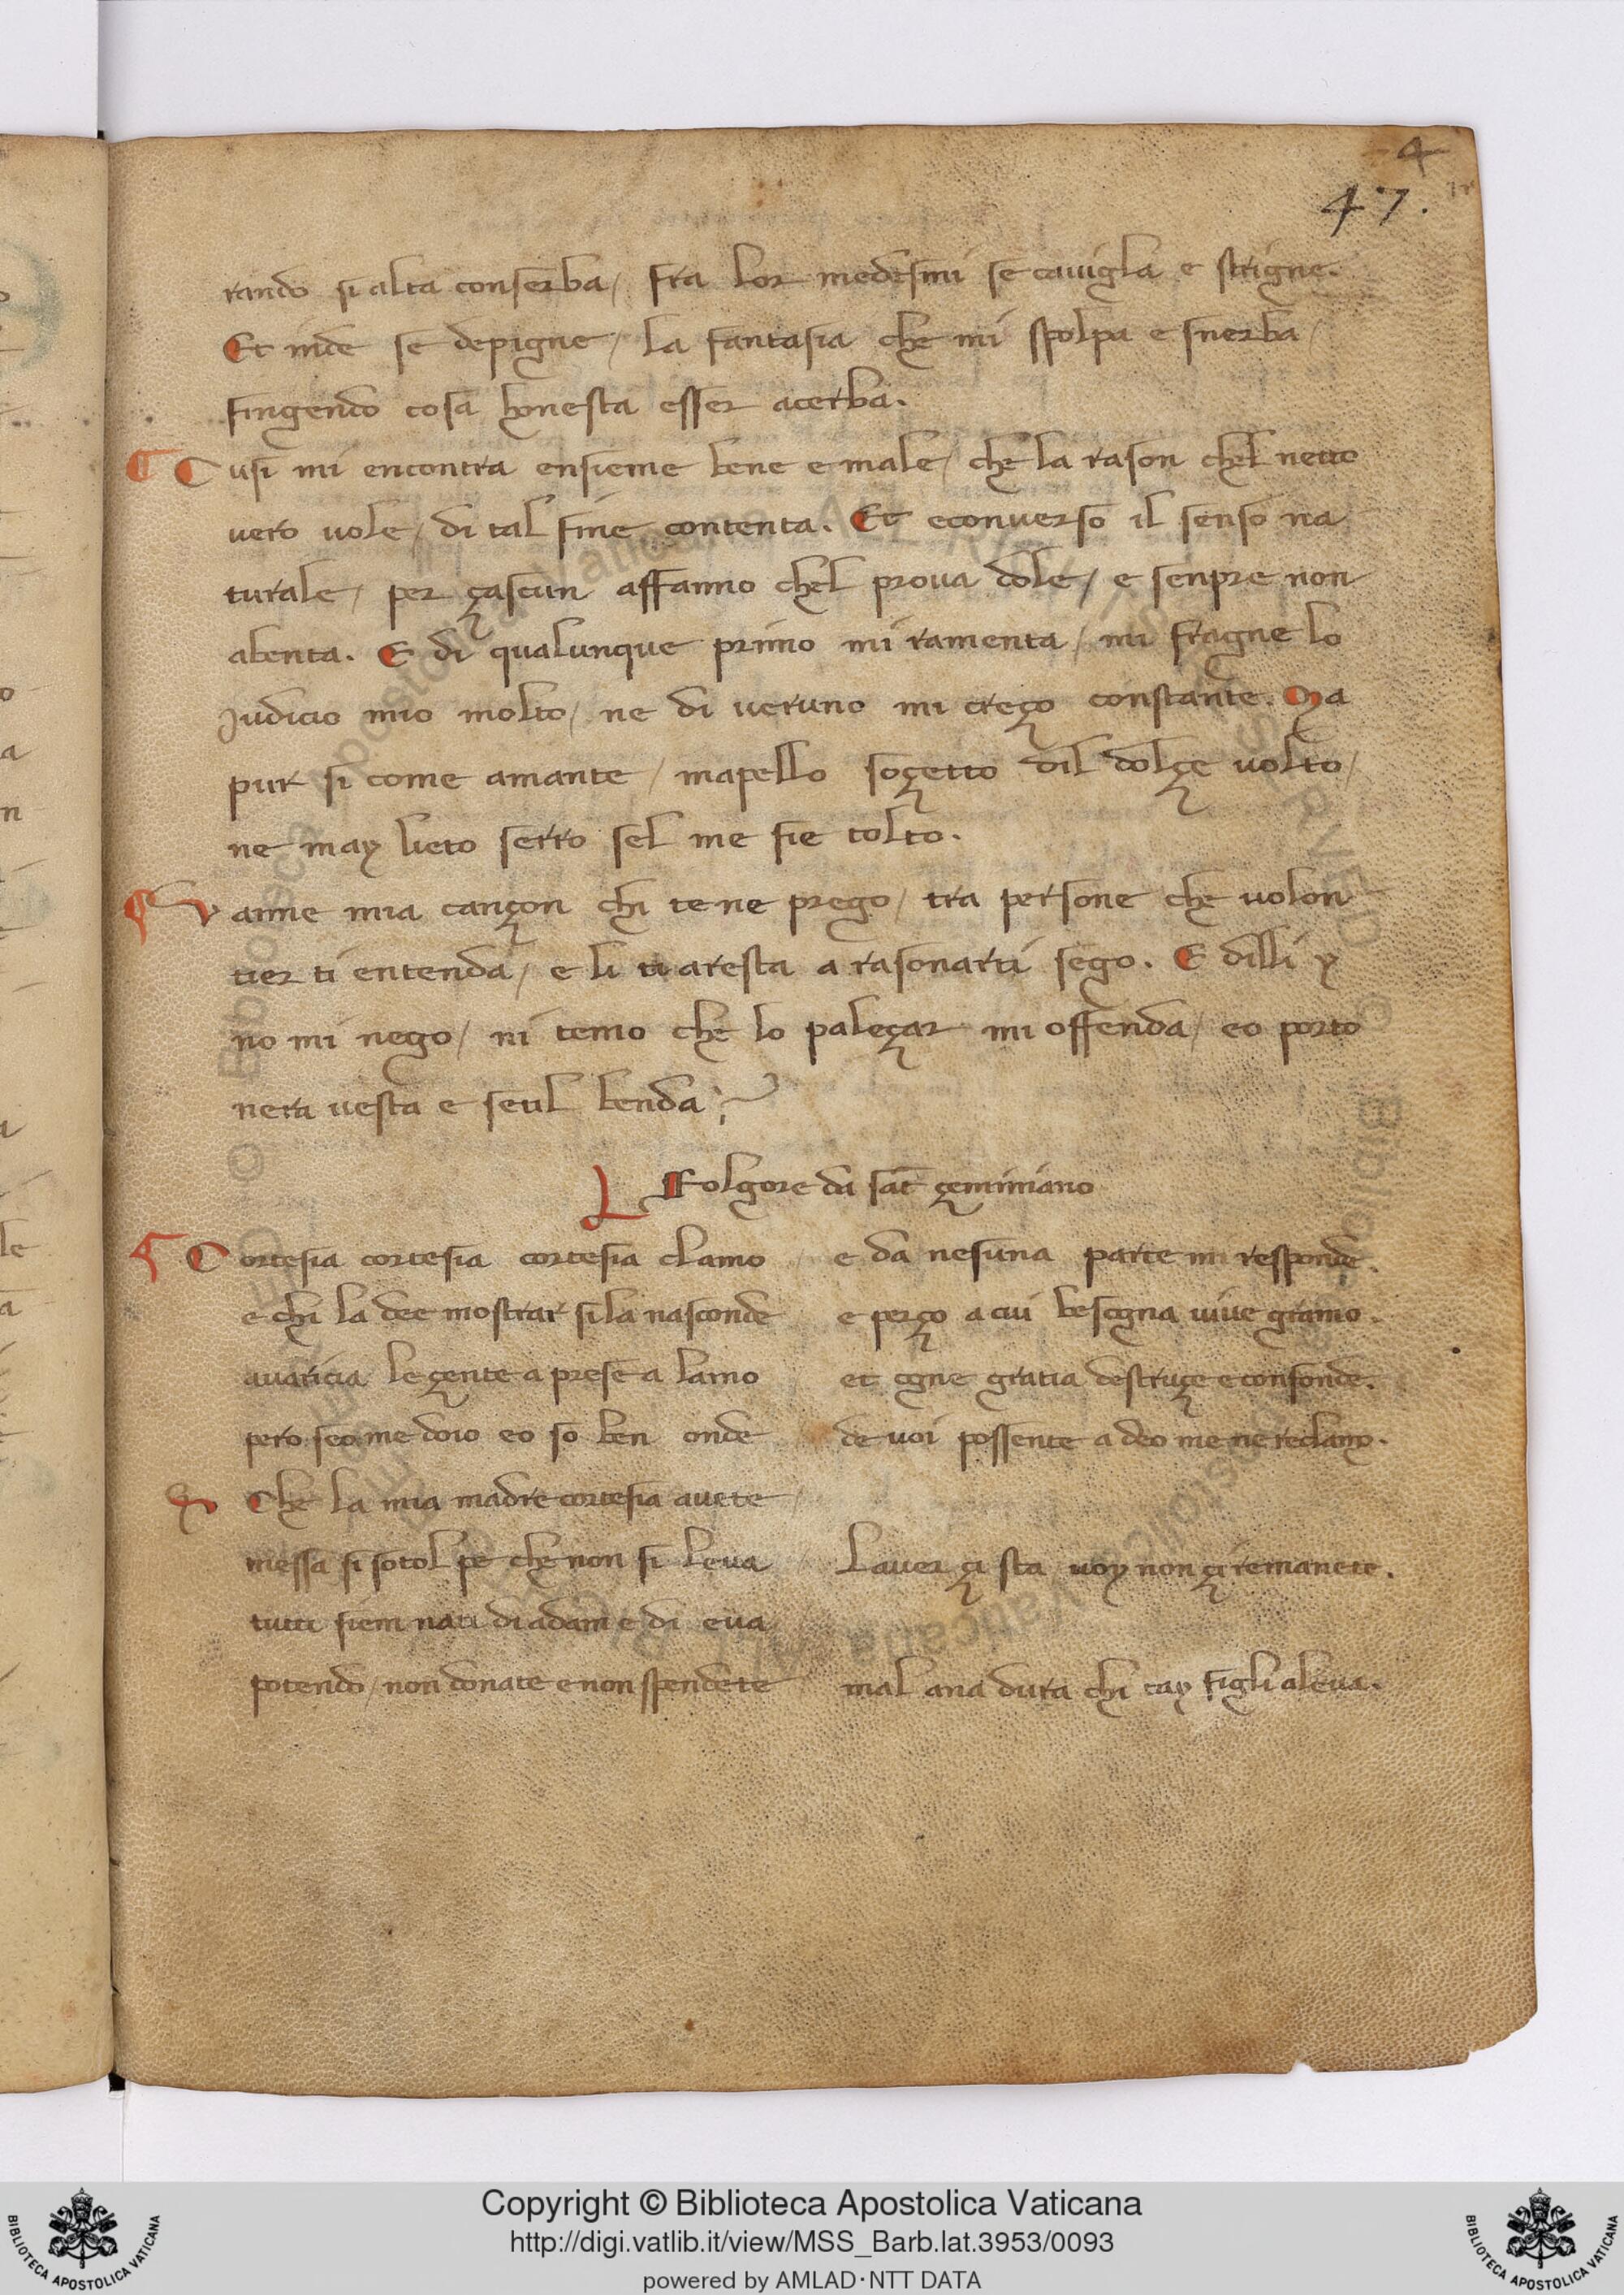 4
47.
rando si alta conserba / fra lor medesmi se cauigla e strigne.
Et inde se depigne / la fantasia che mi spolpa e snerba /
fingendo cosa honesta esser acerba.
Cusi mi encontra ensieme bene e male / che la rason chel netto
uero uole / di tal fine contenta. Et econuerso il senso na
turale / per çascun affanno chel proua dole / e senpre non
abenta. E di qualunque primo mi ramenta / mi fragne lo
Judicio mio molto / ne di ueruno mi creço constante. Ma
pur si come amante / mapello soçetto dil dolçe uolto /
ne may lieto serro sel me fie tolto.
Vanne mia cançon chi te ne prego / tra persone che uolon
tier ti entenda / e li ti aresta a rasonarti sego. E dilli y
no mi nego / ni temo che lo paleçar mi offenda / eo porto
nera uesta e seul benda
Folgore da sat çeminiano
Cortesia cortesia cortesia clamo / e da nesuna parte mi responde.
e chi la dee mostrar si la nasconde e perço a cui besogna uiue gramo.
auaricia le çente a prese a lamo et ogne gratia destruçe e confonde.
pero seo me doio eo so ben onde de uoi possente a deo me ne reclamo.
Che la mia madre cortesia auete /
messa si sotol pe che non si leua / lauer çi sta uoy non çi remanete.
tutti siem nati di adam e di eua
potendo / non donate e non spendete / mal ana dura chi tay figli aleua.
Copyright © Biblioteca Apostolica Vaticana
http://digi.vatlib.it/view/MSS_Barb.lat.3953/0093
powered by AMLAD·NTT DATA
BIBLIOTECA APOSTOLICA VATICANA
BIBLIOTECA APOSTOLICA VATICANA